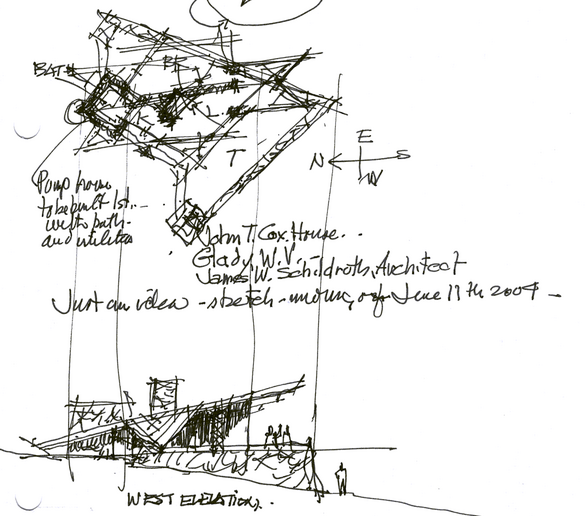 BATH
BR
K
L
T
E
N S
W
Pump house
to be built 1st.
with bath
and utilities
John T. Cox. House..
Glady, W.V. -
James W. Schildroth, Architect
Just an idea - stretch - June 11th 2004 -
WEST ELEVATION. ..